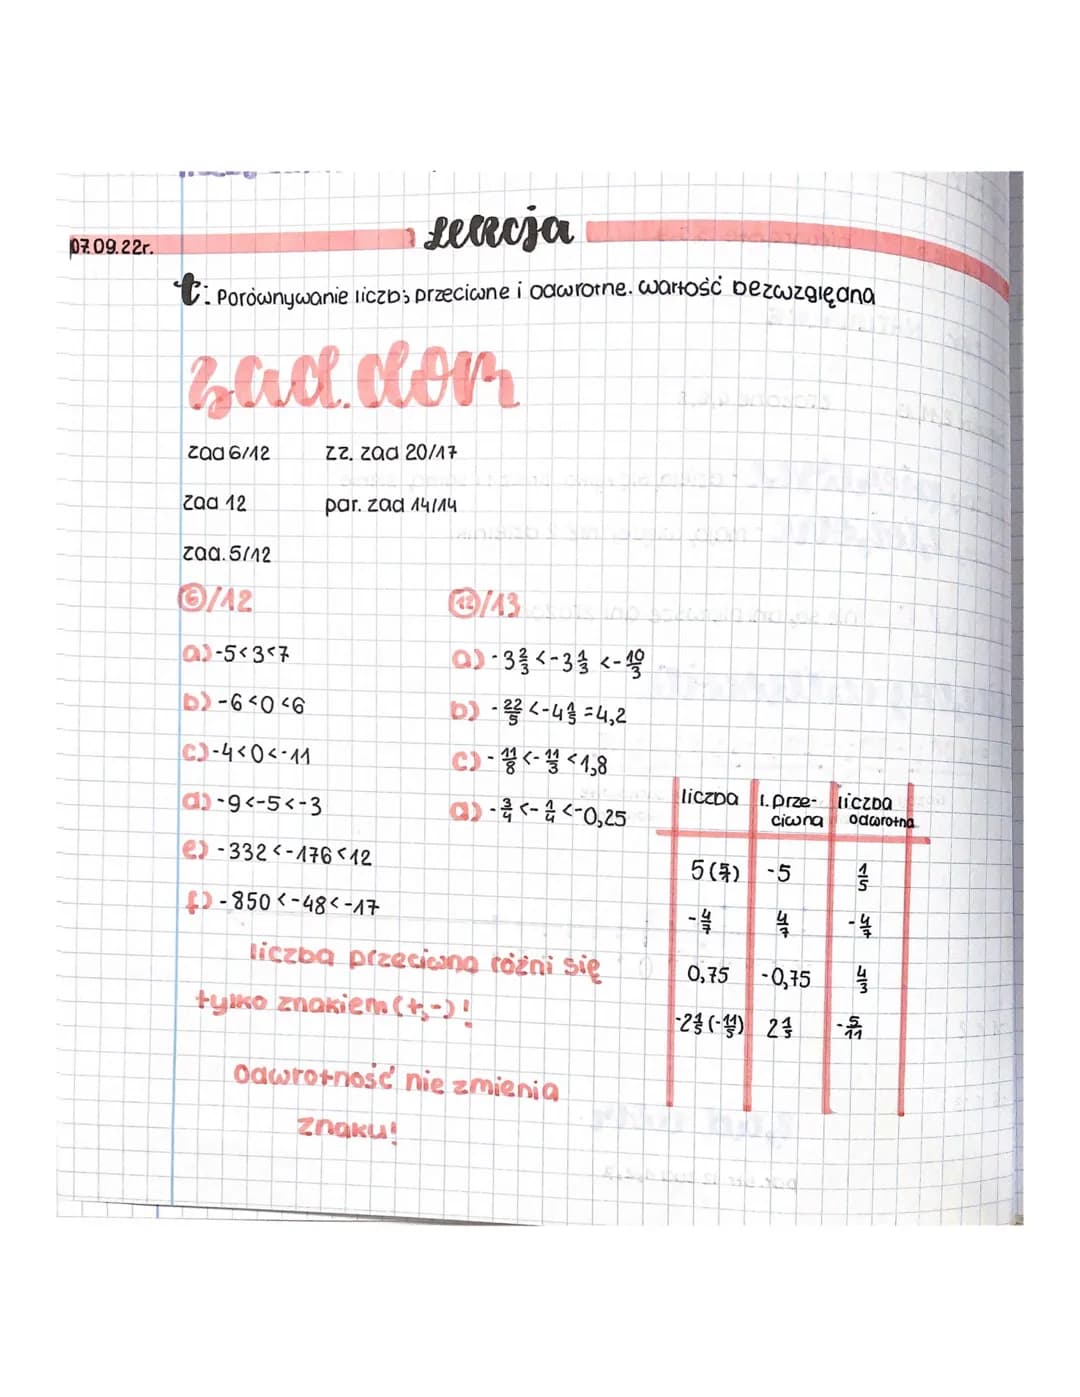 lekcja
07.09.22r.
t: Porównywanie liczb; przeciwne i odwrotne. wartość bezwzględna
zad.dom
zad 6/12 zz. zad 20/17
zad 12 par. zad 14/14
zad. 5/12
6/12
a) -5<3<7
b) -6<0<6
c) -4<0<-11
d) -9<-5<-3
e) -332<-176<12
f) -850<-48<-17
12/13
a) -3 2/3 <-3 1/3 <- 10/3
b) - 22/5 <-4 1/5 =4,2
c) - 11/8 <- 11/3 <1,8
d) - 3/4 <- 1/4 <-0,25
liczba l. prze- liczba
ciwna odwrotna
5 -5 1/5
- 4/7 4/7 - 4/7
0,75 -0,75 4/3
-2 1/5 (- 11/5) 2 1/5 - 5/11
liczba przeciwna różni się
tylko znakiem (+,-)!
Odwrotność nie zmienia
znaku!